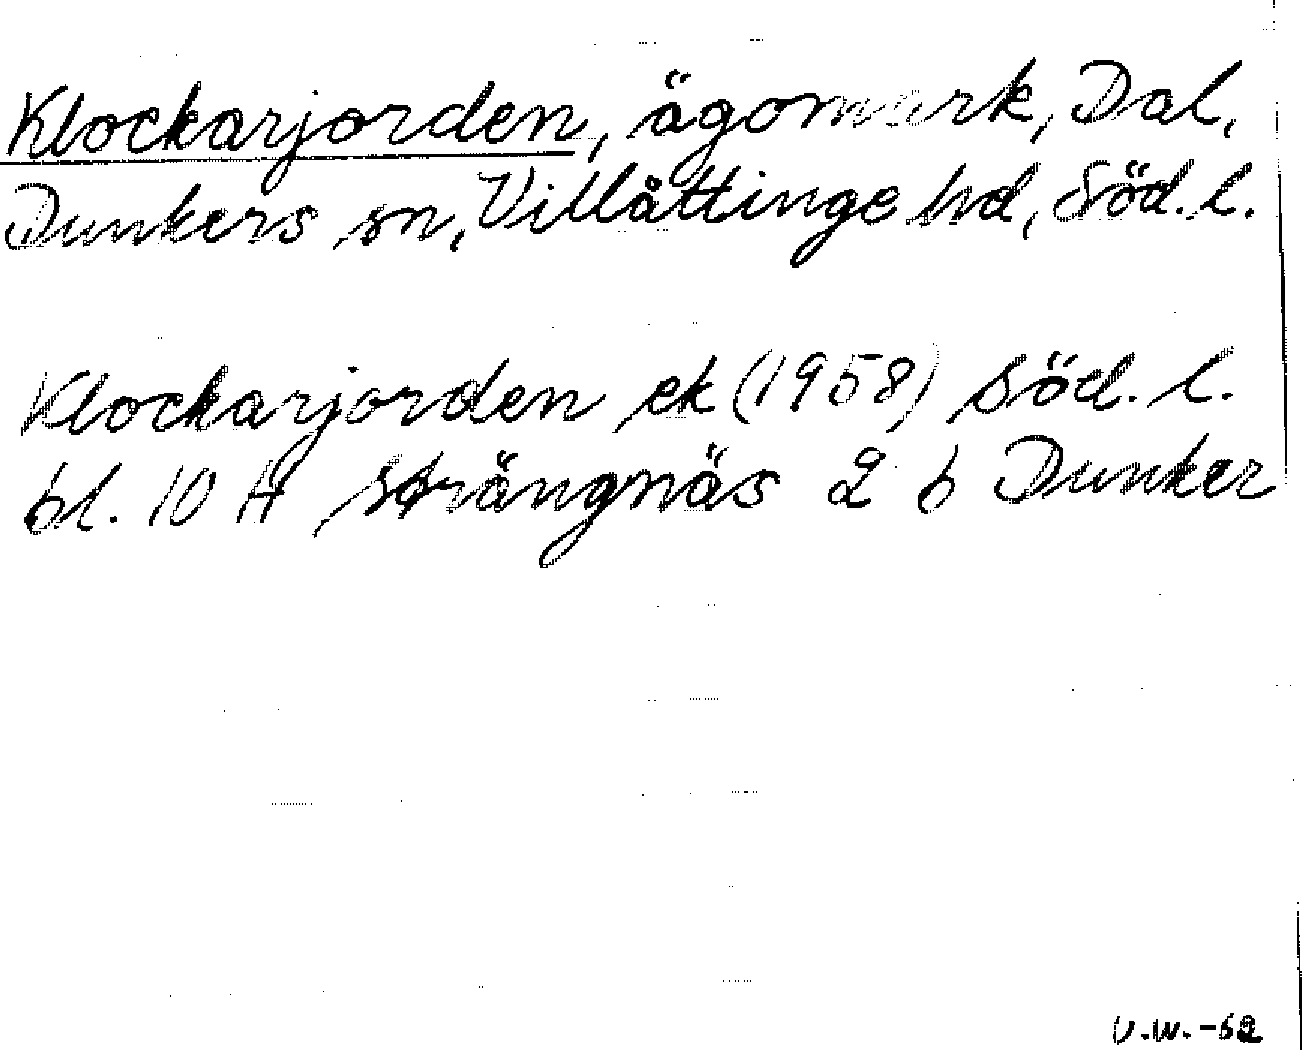 Klockarjorden, ägomark, Dal,
Dunkers sn, Villåttinge hd, Söd. l.
Klockarjorden ek (1958) Söd. l.
bl. 10 H Strängnäs 2 b Dunker
U.W. -62